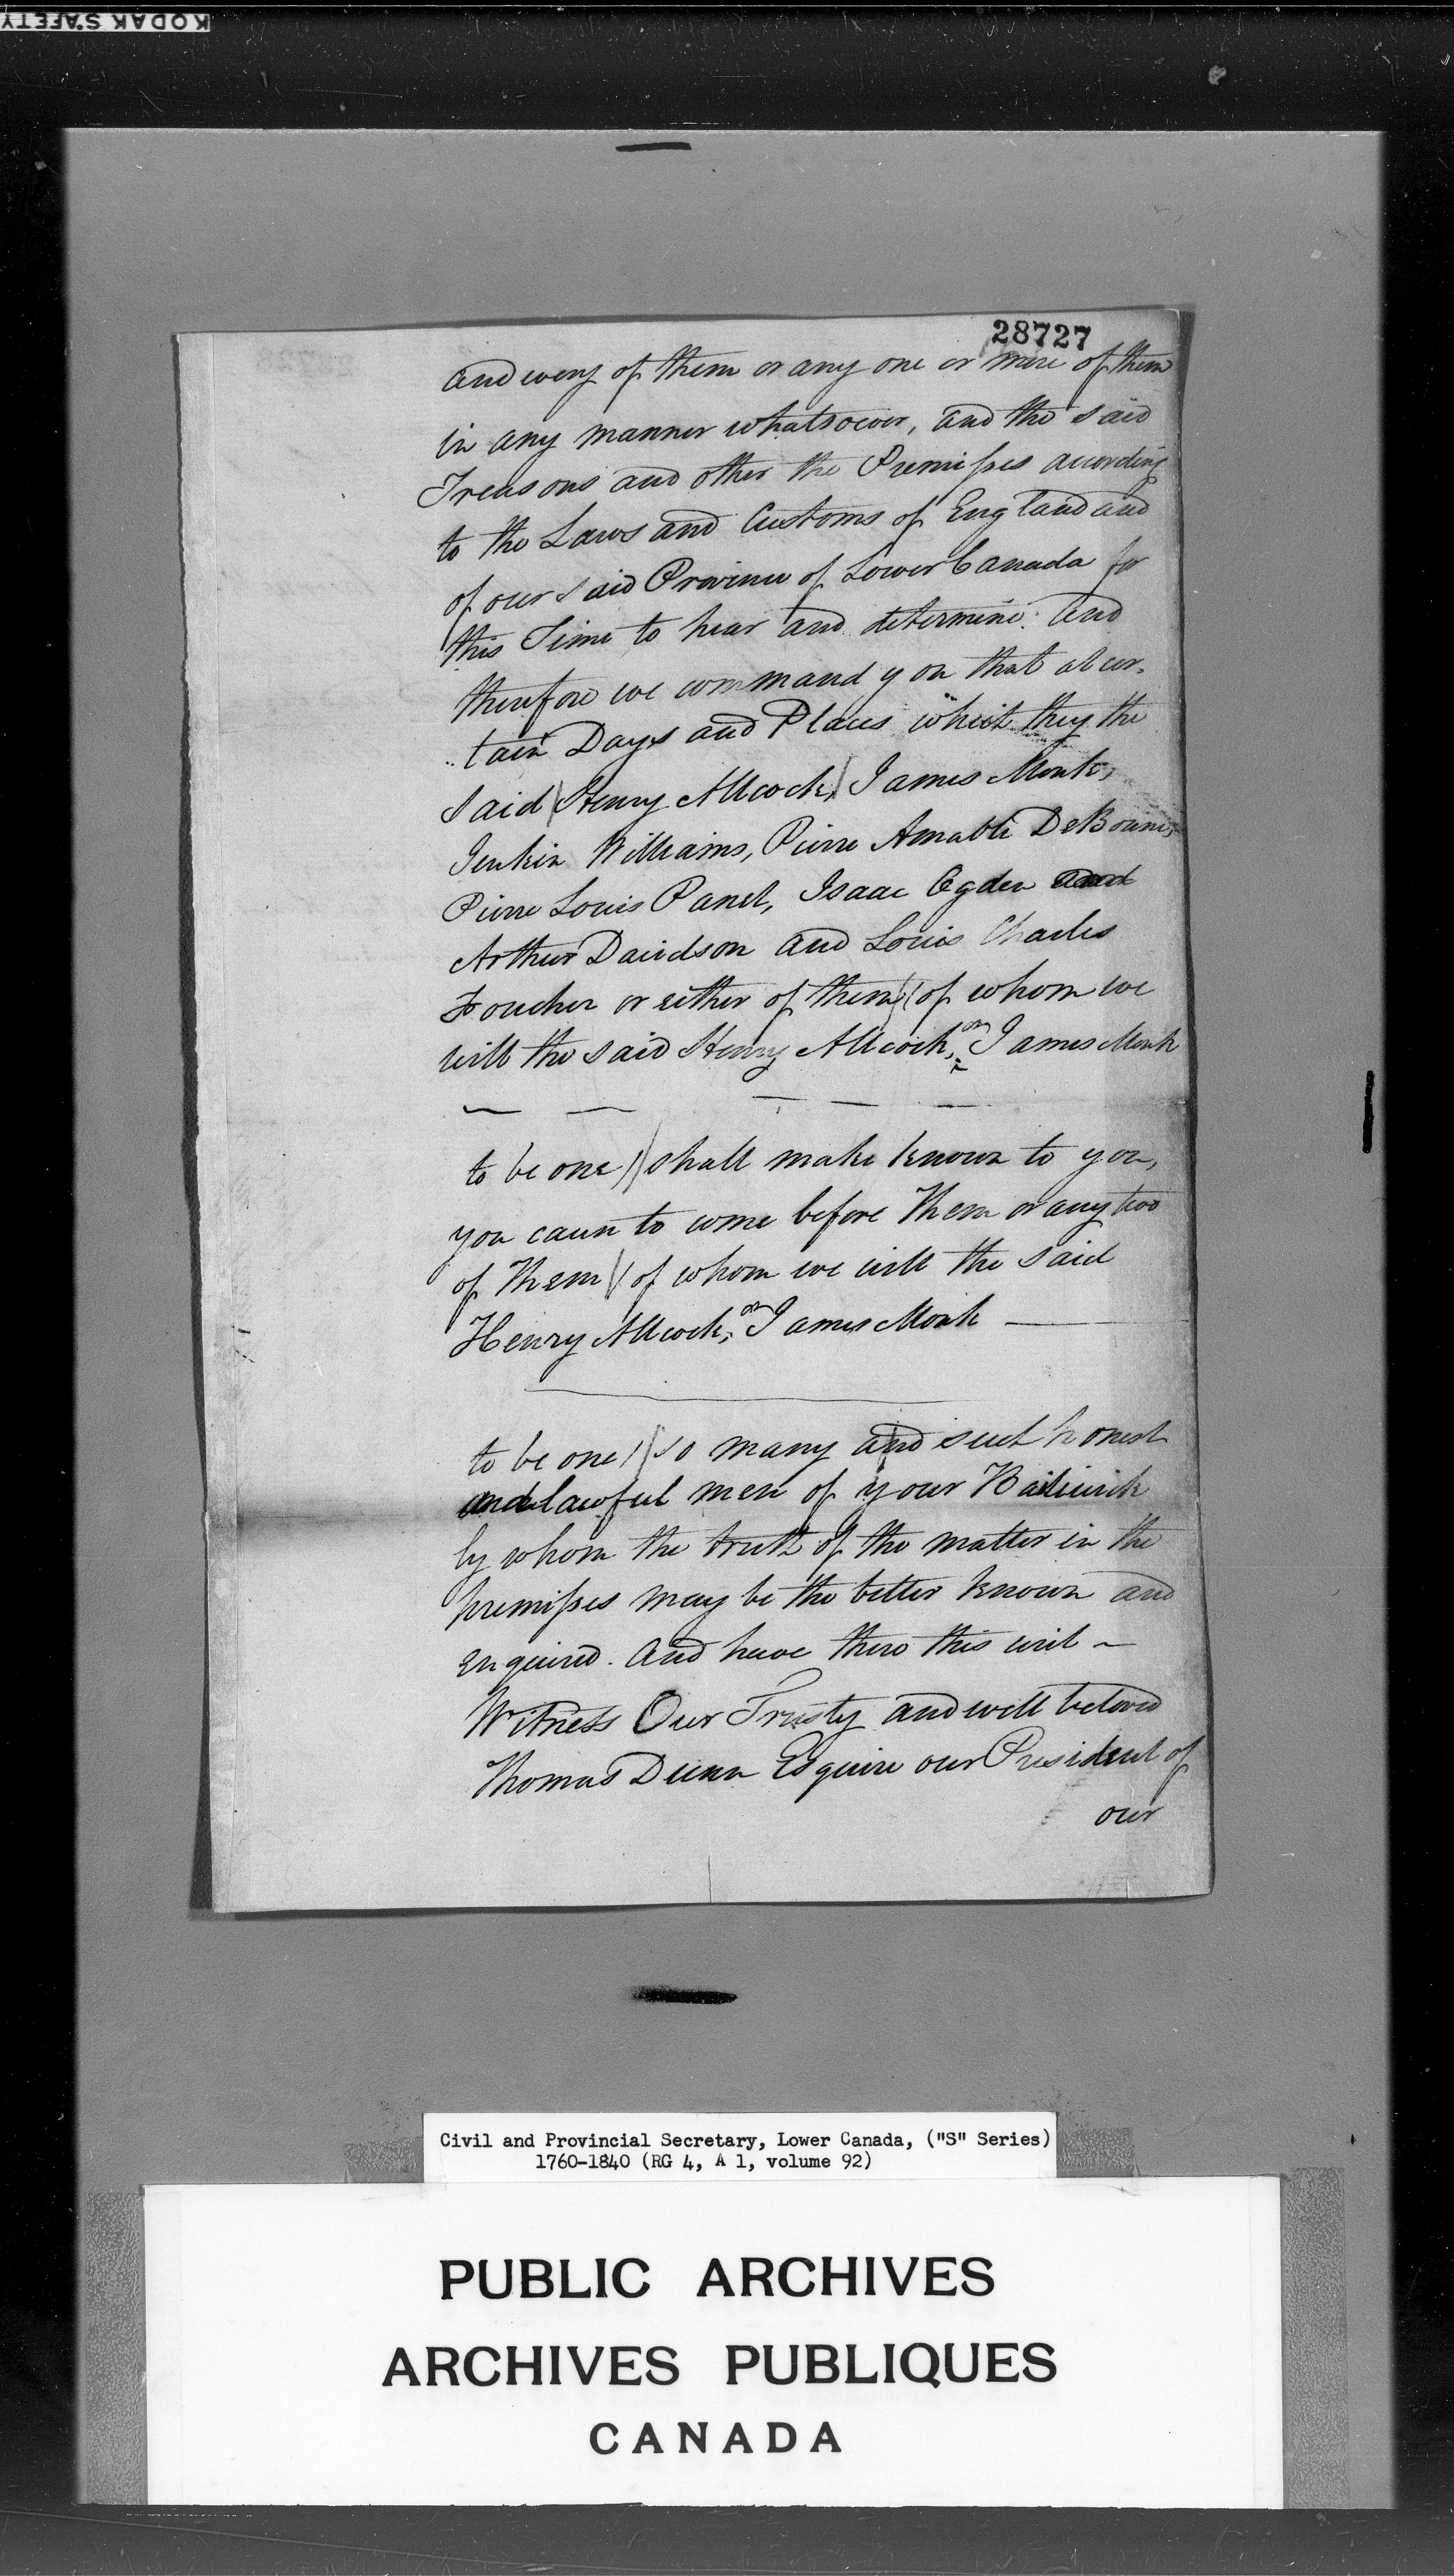 KODAK SAFETY
28727
and every of them or any one or more of them
in any manner whatsoever, and the said
Treasons and other the Premisses according
to the Laws and Customs of England and
of our said Province of Lower Canada for
this Time to hear and determine: And
therefore we command you that at cer-
-tain Days and Places which they the
said (Henry Allcock,) James Monk,
Jenkin Williams, Pierre Amable DeBonne,
Pierre Louis Panet, Isaac Ogden and
Arthur Davidson and Louis Charles
Foucher or either of them (of whom we
will the said Henry Allcock, or James Monk
to be one) shall make known to you,
you cause to come before Them or any two
of Them (of whom we will the said
Henry Allcock, or James Monk
to be one) so many and such honest
and lawful men of your Bailiwick
by whom the truth of the matter in the
premisses may be the better known and
enquired. And have there this writ ~
Witness Our Trusty and well beloved
Thomas Dunn Esquire our President of
our
Civil and Provincial Secretary, Lower Canada, ("S" Series)
1760-1840 (RG 4, A 1, volume 92)
PUBLIC ARCHIVES
ARCHIVES PUBLIQUES
CANADA